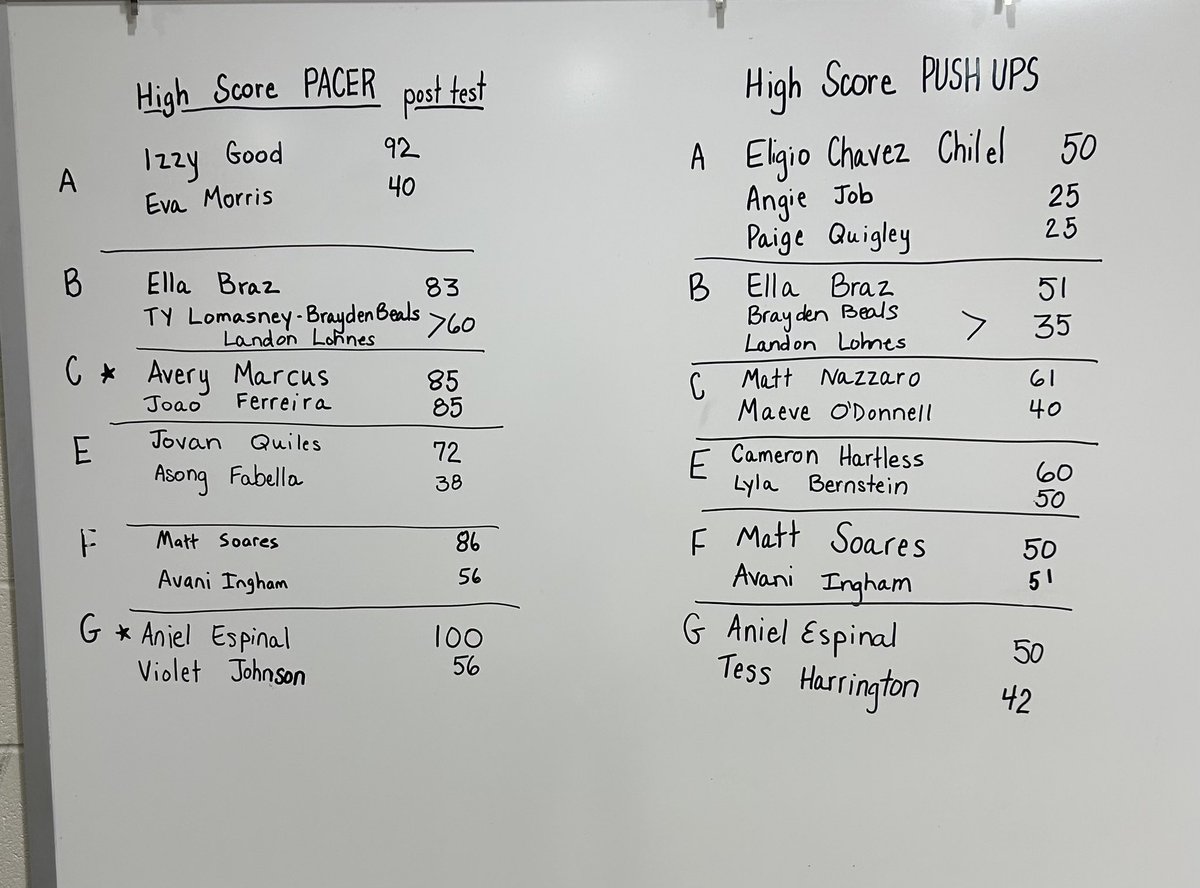 High Score PACER post test
A
Izzy Good 92
Eva Morris 40
B Ella Braz 83
TY Lomasney - Brayden Beals >60
Landon Lohnes
C ★ Avery Marcus 85
Joao Ferreira 85
E Jovan Quiles 72
Asong Fabella 38
F Matt Soares 86
Avani Ingham 56
G ★ Aniel Espinal 100
Violet Johnson 56
High Score PUSH UPS
A Eligio Chavez Chilel 50
Angie Job 25
Paige Quigley 25
B Ella Braz 51
Brayden Beals > 35
Landon Lohnes
C Matt Nazzaro 61
Maeve O'Donnell 40
E Cameron Hartless 60
Lyla Bernstein 50
F Matt Soares 50
Avani Ingham 51
G Aniel Espinal 50
Tess Harrington 42